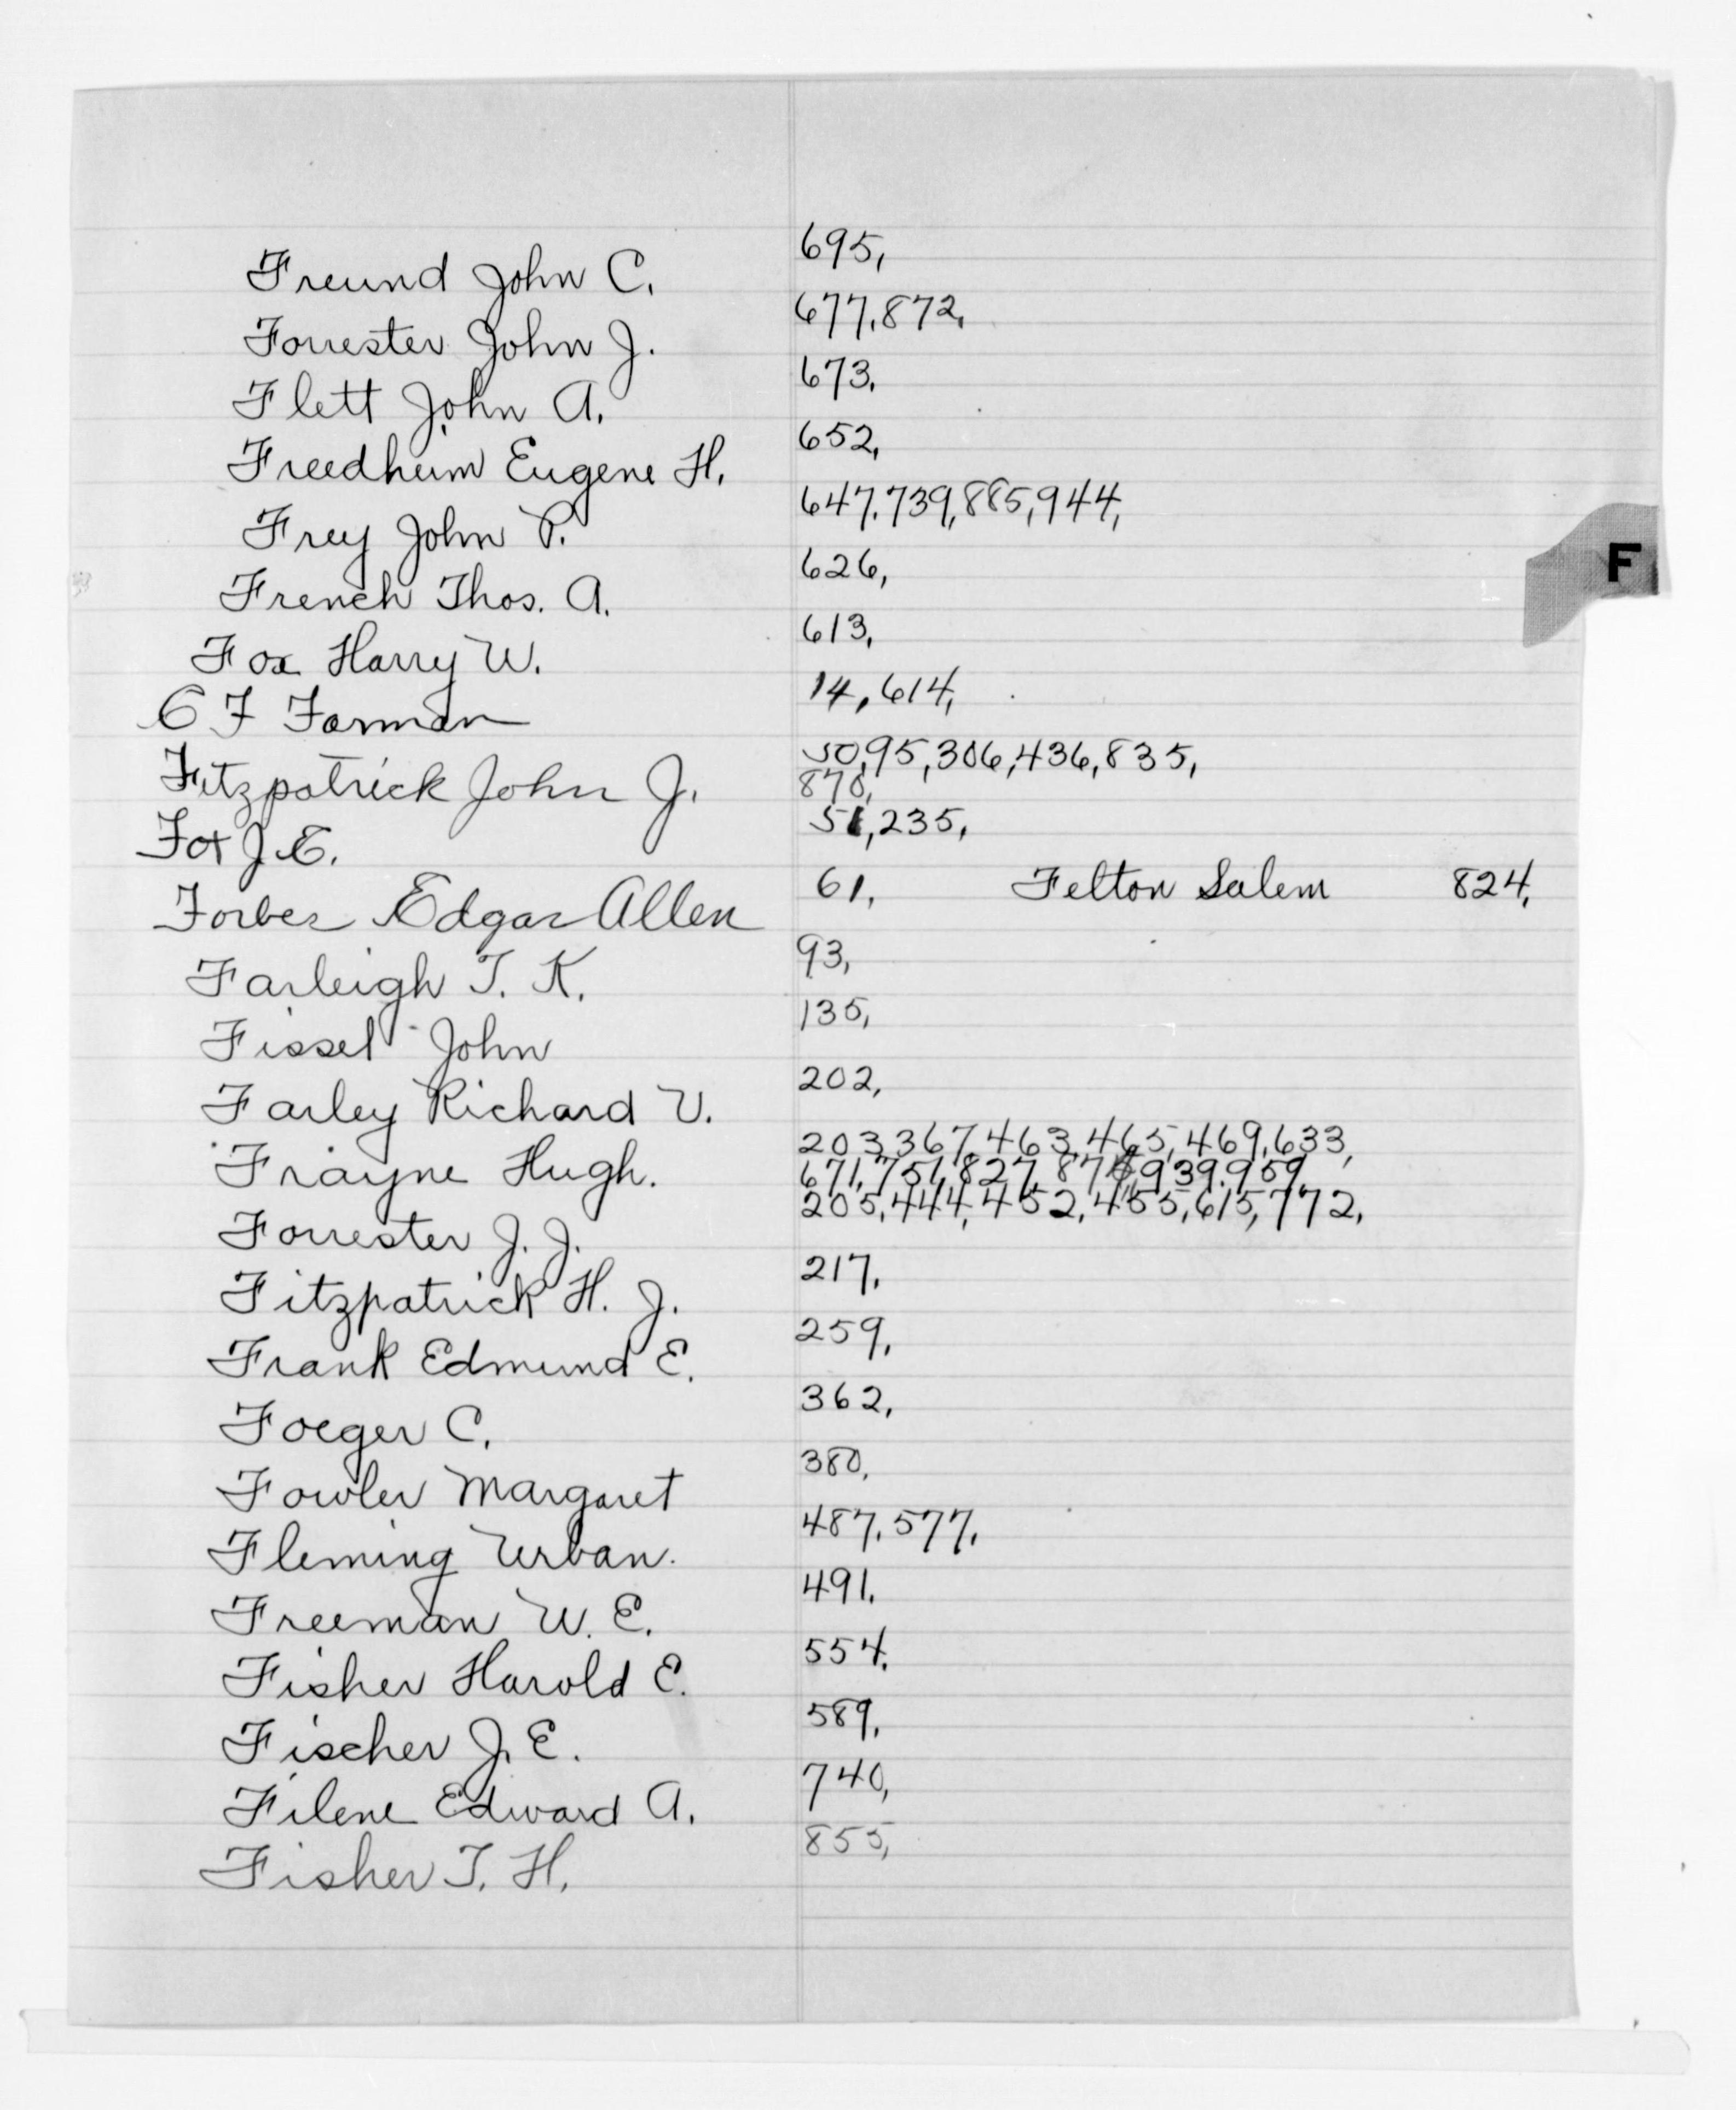 Freund John C. 695,
Forrester John J. 677,872,
Flett John A. 673,
Freedheim Eugene H. 652,
Frey John P. 647,739,885,944,
F
French Thos. A. 626,
Fox Harry W. 613,
C F Forman 14,614,
Fitzpatrick John J. 50,95,306,436,835,
870,
Fox J. E. 51,235,
Forbes Edgar Allen 61, Felton Salem 824,
Farleigh T. K. 93,
Fissel John 135,
Farley Richard V. 202,
Frayne Hugh. 203,367,463,465,469,633,
671,751,827, 939.959,
Forrester J. J. 205,444,452,455,615,772,
Fitzpatrick H. J. 217,
Frank Edmund E. 259,
Foeger C. 362,
Fowler Margaret 380,
Fleming Urban. 487,577,
Freeman W. E. 491.
Fisher Harold E. 554.
Fischer J. E. 589,
Filene Edward A. 740,
Fisher T. H. 855,